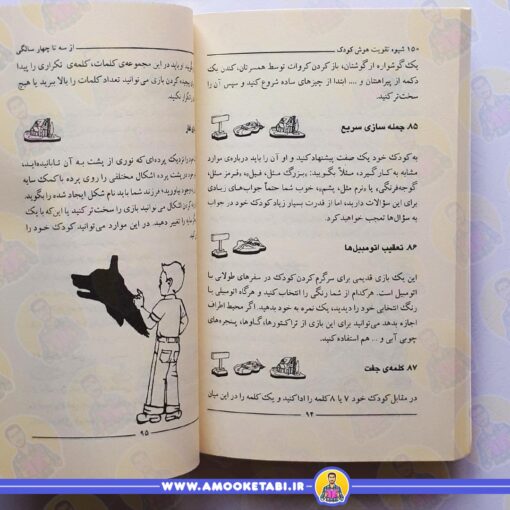 ۱۵۰ شیوه تقویت هوش کودک
یک گوشواره از گوشتان، باز کردن کروات توسط همسرتان، کندن یک
دکمه از پیراهنتان و .... ابتدا از چیزهای ساده شروع کنید و سپس آن را
سخت‌تر کنید.
۸۵. جمله سازی سریع
به کودک خود یک صفت پیشنهاد کنید و او آن را باید درباره‌ی موارد
مشابه به کار گیرد، مثلاً بگویید: ...بزرگ مثل، فیل، ...قرمز مثل،
گوجه‌فرنگی، یا، نرم مثل، پشم، خوب شما حتماً جواب‌های زیادی
برای این موارد دارید. اما از قدرت بسیار زیاد کودک خود در جواب
به سؤال‌ها تعجب خواهید کرد.
۸۶. تعقیب اتومبیل‌ها
این یک بازی قدیمی برای سرگرم کردن کودک در سفرهای طولانی با
اتومبیل است. هرکدام از شما رنگی را انتخاب کنید و هرگاه اتومبیلی با
رنگ انتخابی خود را دیدید، یک نمره به خود بدهد. اگر محیط اطراف
اجازه بدهد می‌توانید برای این بازی از تراکتورها، گاوها، پنجره‌های
چوبی آبی و ... هم استفاده کنید.
۸۷. کلمه‌ی جفت
در مقابل کودک خود ۷ یا ۸ کلمه را ادا کنید و یک کلمه را در این میان
۹۴
از سه تا چهار سالگی
او باید در این مجموعه‌ی کلمات، کلمه‌ی تکراری را پیدا
کردن بازی می‌توانید تعداد کلمات را بالا ببرید یا هیچ
تکرار نکنید.
نزدیک پرده‌ای که نوری از پشت به آن تابانیده‌اید،
در پشت پرده اشکال مختلفی را روی پرده با کمک سایه
بیاورید؛ فرزند شما باید نام شکل ایجاد شده را بگوید.
اشکال می‌توانید بازی را سخت‌تر کنید یا این که با یک
را تغییر دهید. در این موارد می‌توانید کودک خود را
۹۵
WWW.AMOOKETABI.IR